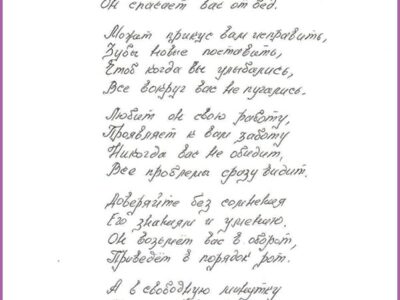 Он спасает вас от бед.
Может прикус вам исправить,
Зубы новые поставить,
Чтоб когда вы улыбались,
Все вокруг вас не пугались.
Любит он свою работу,
Проявляет к вам заботу
Никогда вас не обидит,
Все проблемы сразу видит.
Доверяйте без сомнения
Его знаниям и умению.
Он возьмет вас в оборот,
Приведёт в порядок рот.
А в свободную минутку